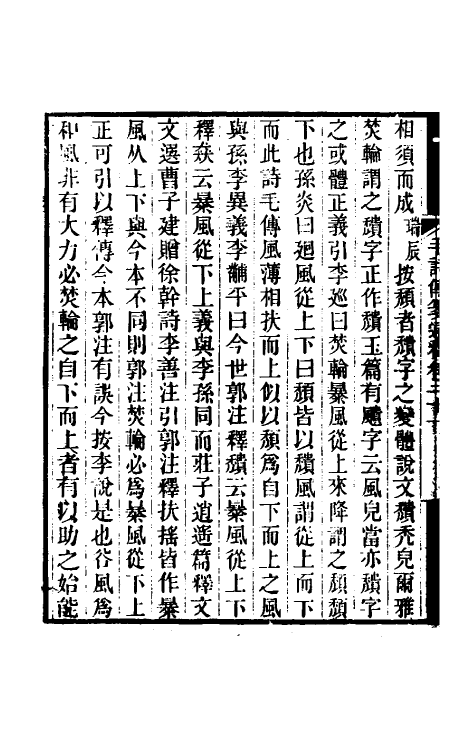 相須而成瑞辰按頹者穨字之變體說文穨禿皃爾雅
焚輪謂之穨字正作穨玉篇有䫻字云風皃當亦穨字
之或體正義引李巡曰焚輪暴風從上來降謂之頹頹
下也孫炎曰迴風從上下曰頹皆以穨風謂從上而下
而此詩毛傳風薄相扶而上似以頹爲自下而上之風
與孫李異義李黼平曰今世郭注釋穨云暴風從上下
釋猋云暴風從下上義與李孫同而莊子逍遙篇釋文
文選曹子建贈徐幹詩李善注引郭注釋扶搖皆作暴
風从上下與今本不同則郭注焚輪必爲暴風從下上
正可引以釋傳今本郭注有誤今按李說是也谷風爲
和風非有大力必焚輪之自下而上者有以助之始能